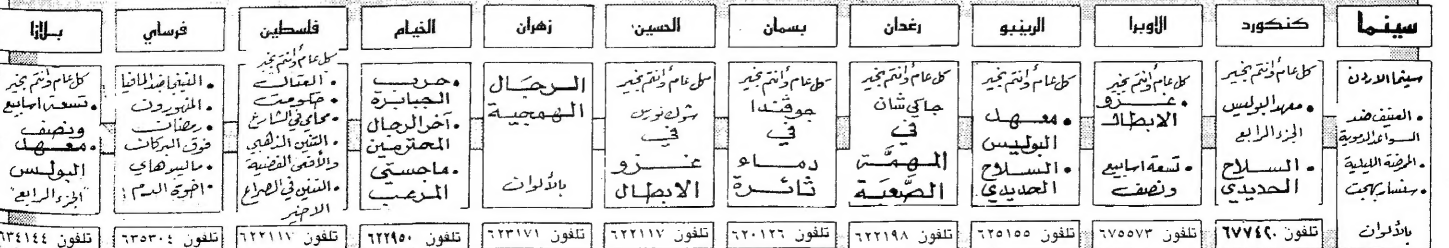 سينما
سينما الاردن
• العنيف ضد
السواعد الدموية
• المرضة الليلية
بالألوان
كنكورد
كل عام وأنتم بخير
• معهد البوليس
الجزء الرابع
• السلاح
الحديدي
تلفون ٦٧٧٤٢٠
الاوبرا
كل عام وأنتم بخير
• غزو
الابطال
• تسعة اسابيع
ونصف
تلفون ٦٧٥٥٧٣
الرينبو
كل عام وأنتم بخير
• معهد
البوليس
• السلاح
الحديدي
تلفون ٦٢٥١٥٥
رغدان
كل عام وأنتم بخير
جاكي شان
في
المهمة
الصعبة
تلفون ٦٢٢١٩٨
بسمان
كل عام وأنتم بخير
جوفندا
في
دماء
ثائرة
تلفون ٦٢٠١٢٦
الحسين
كل عام وأنتم بخير
شوك نورس
في
غزو
الابطال
تلفون ٦٢٢١١٧
زهران
الرجال
الهمجية
بالألوان
تلفون ٦٢٣١٧١
الخيام
• حرب
الجبابرة
• آخر الرجال
المحترمين
• ماجستي
المرعب
تلفون ٦٢٢٩٥٠
فلسطين
كل عام وأنتم بخير
• العتال
• حكومت
• محامي في الشارع
• التنين الذهبي
والأفعى الفضية
• التنين في الصراع
الاخير
تلفون ٦٢٢١١٧
فرساي
• النينجا ضد المافيا
• المتهورون
• رمضان
فوق البركان
• اخوي الدم
تلفون ٦٣٥٣٠٤
بلازا
كل عام وأنتم بخير
• تسعة اسابيع
ونصف
• معهد
البوليس
"الجزء الرابع"
٦٣٤١٤٤